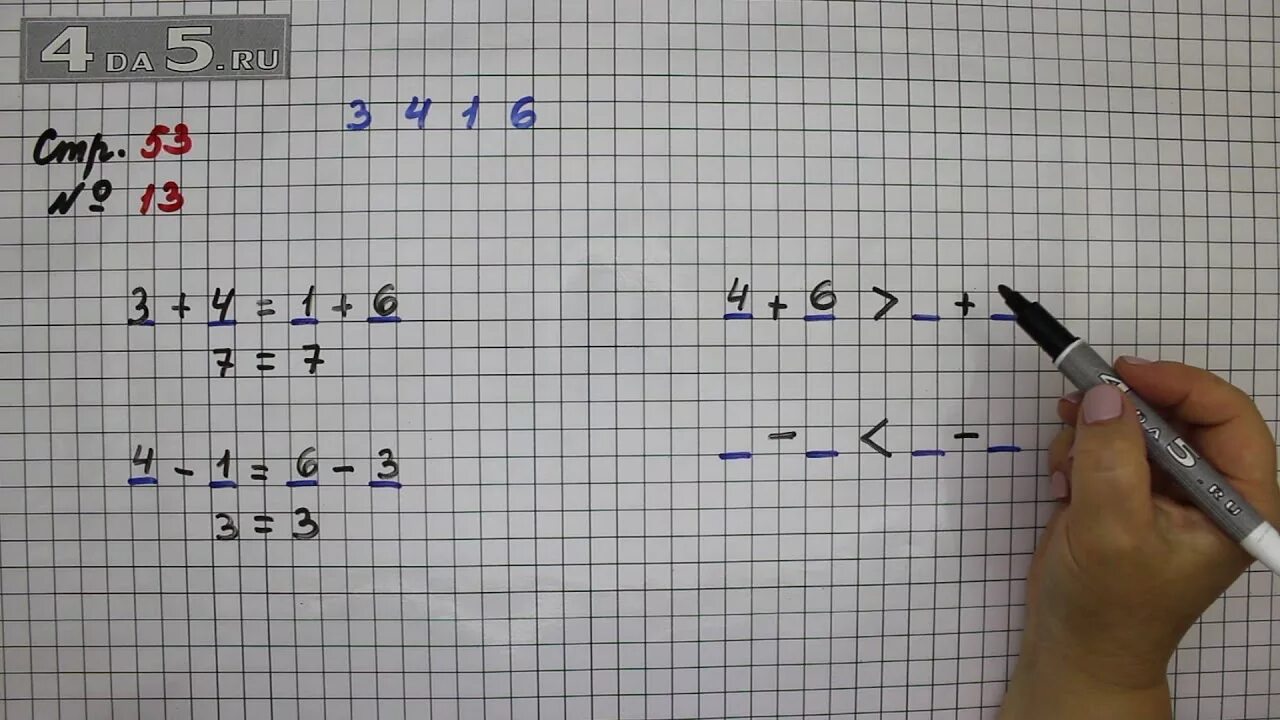 4 DA 5.RU
3 4 1 6
Стр. 53
№ 13
3 + 4 = 1 + 6
7 = 7
4 - 1 = 6 - 3
3 = 3
4 + 6 > _ + _
_ - _ < _ - _
4 DA 5.RU